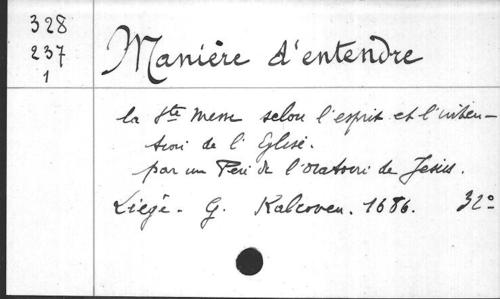 328
237
1
Manière d'entendre
la Ste Messe selon l'esprit et l'inten-
tion de l'Eglise.
par un Père de l'oratoire de Jesus.
Liège. G. Kalcoven. 1686. 32°